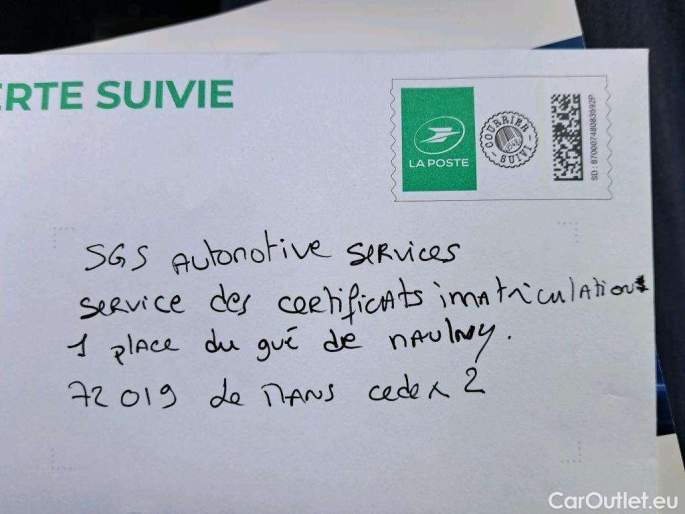 ERTE SUIVIE
LA POSTE
COURRIER SUIVI
SD : 87000748083592P
SGS Automotive Services
Service des certificats imatriculations
1 place du gué de Maulny.
72019 Le Mans cedex 2
CarOutlet.eu